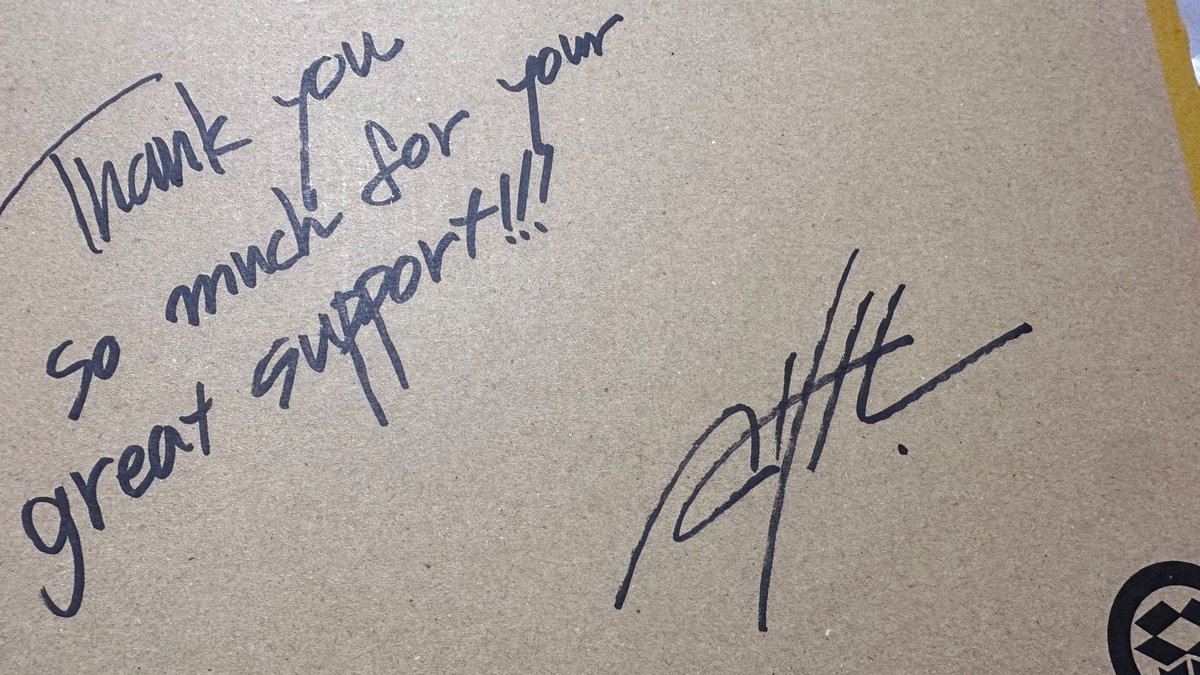 Thank you
so much for your
great support!!!